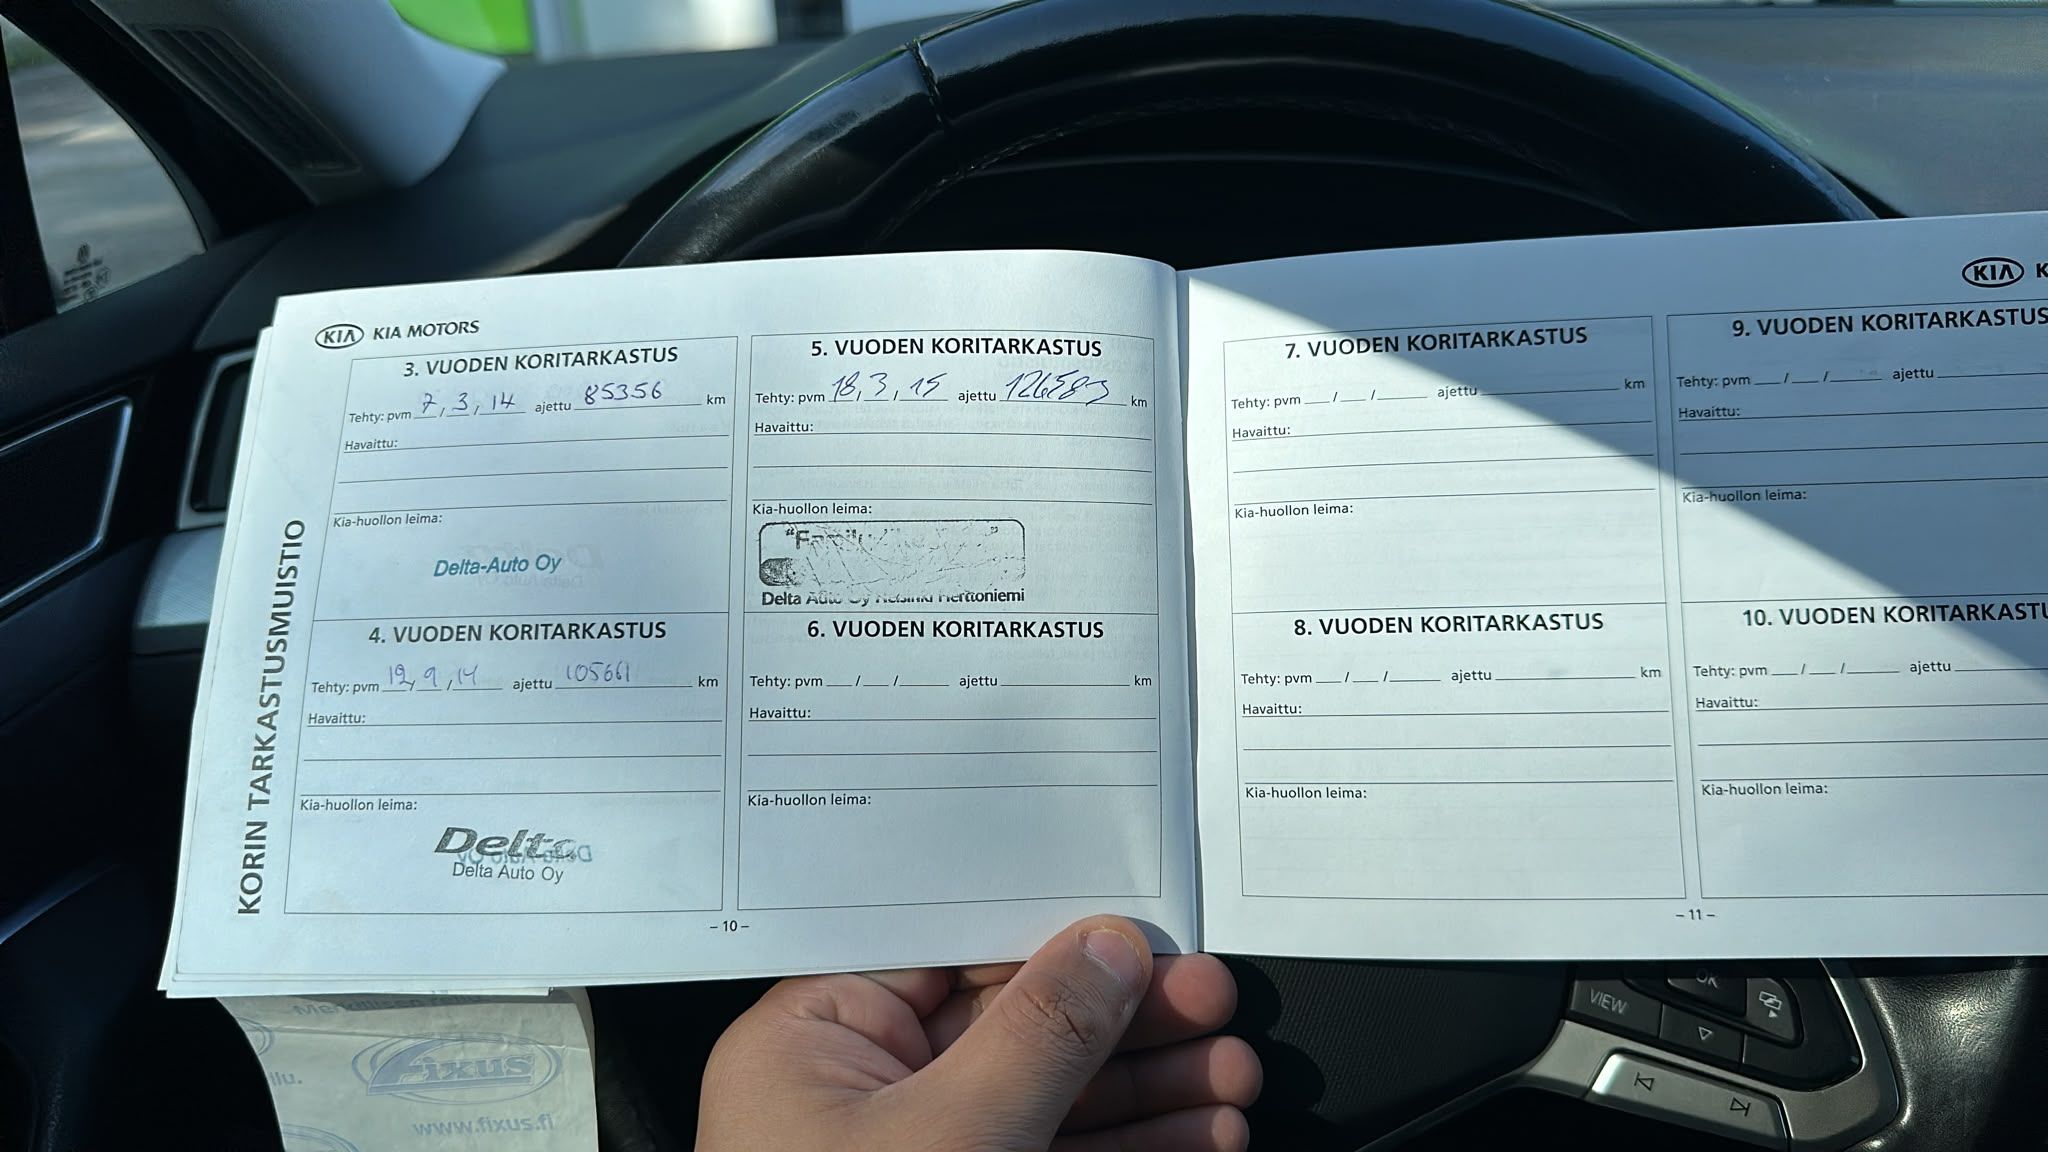 KIA KIA MOTORS
KORIN TARKASTUSMUISTIO
3. VUODEN KORITARKASTUS
Tehty: pvm 7, 3, 14 ajettu 85356 km
Havaittu:
Kia-huollon leima:
Delta-Auto Oy
4. VUODEN KORITARKASTUS
Tehty: pvm 12, 9, 14 ajettu 105661 km
Havaittu:
Kia-huollon leima:
Delta
Delta Auto Oy
5. VUODEN KORITARKASTUS
Tehty: pvm 18, 3, 15 ajettu km
Havaittu:
Kia-huollon leima:
"Family "
Delta Auto Oy Helsinki Herttoniemi
6. VUODEN KORITARKASTUS
Tehty: pvm __/__/____ ajettu km
Havaittu:
Kia-huollon leima:
– 10 –
KIA K
7. VUODEN KORITARKASTUS
Tehty: pvm __/__/____ ajettu km
Havaittu:
Kia-huollon leima:
8. VUODEN KORITARKASTUS
Tehty: pvm __/__/____ ajettu km
Havaittu:
Kia-huollon leima:
9. VUODEN KORITARKASTUS
Tehty: pvm __/__/____ ajettu
Havaittu:
Kia-huollon leima:
10. VUODEN KORITARKASTU
Tehty: pvm __/__/____ ajettu
Havaittu:
Kia-huollon leima:
– 11 –
VIEW
OK
Fixus
www.fixus.fi